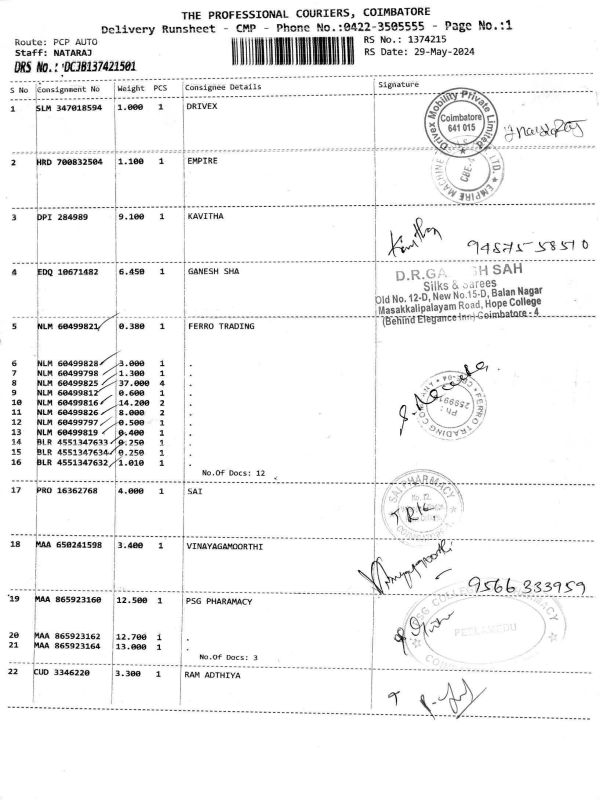 THE PROFESSIONAL COURIERS, COIMBATORE
Delivery Runsheet - CMP - Phone No.:0422-3505555 - Page No.:1
Route: PCP AUTO
RS No.: 1374215
Staff: NATARAJ
RS Date: 29-May-2024
DRS No.: DCJB137421501
S No Consignment No Weight PCS Consignee Details Signature
1 SLM 347018594 1.000 1 DRIVEX
Drivex Mobility Private Limited
Coimbatore
641 015
2 HRD 700832504 1.100 1 EMPIRE
EMPIRE MACHINE LTD.
CBE-4
3 DPI 284989 9.100 1 KAVITHA
Kavitha 94875 58510
4 EDQ 10671482 6.450 1 GANESH SHA
D.R.GA SH SAH
Silks & Sarees
Old No. 12-D, New No.15-D, Balan Nagar
Masakkalipalayam Road, Hope College
(Behind Elegance Inn) Coimbatore - 4
5 NLM 60499821 0.380 1 FERRO TRADING
6 NLM 60499828 3.000 1 .
7 NLM 60499798 1.300 1 .
8 NLM 60499825 37.000 4 .
9 NLM 60499812 0.600 1 .
10 NLM 60499816 14.200 2 .
11 NLM 60499826 8.000 2 .
12 NLM 60499797 0.500 1 .
13 NLM 60499819 0.400 1 .
14 BLR 4551347633 0.250 1 .
15 BLR 4551347634 0.250 1 .
16 BLR 4551347632 1.010 1 .
FERRO TRADING CO
Ph :
No.Of Docs: 12
17 PRO 16362768 4.000 1 SAI
SAI PHARMACY
18 MAA 650241598 3.400 1 VINAYAGAMOORTHI
Vinayagamoorthi
9566 333959
19 MAA 865923160 12.500 1 PSG PHARAMACY
PSG COLLEGE PHARMACY
PEELAMEDU
20 MAA 865923162 12.700 1 .
21 MAA 865923164 13.000 1 .
No.Of Docs: 3
22 CUD 3346220 3.300 1 RAM ADTHIYA